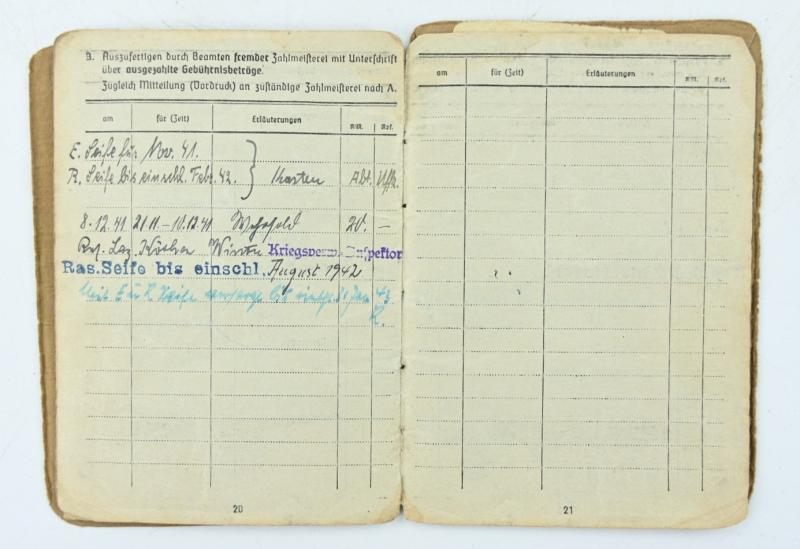 3. Auszufertigen durch Beamten fremder Zahlmeisterei mit Unterschrift
über ausgezahlte Gebührnisbeträge.
Zugleich Mitteilung (Vordruck) an zuständige Zahlmeisterei nach A.
am für (Zeit) Erläuterungen RM. Rpf.
E. Seife für Nov. 41.
R. Seife bis einschl. Febr. 42. Karten
8.12.41 21.11.–10.12.41 Wehrsold 20. –
Res. Laz. Köthen Kriegsverw.-Inspektor
Ras.Seife bis einschl. August 1942
Mit E u R Seife
20
am für (Zeit) Erläuterungen RM. Rpf.
21